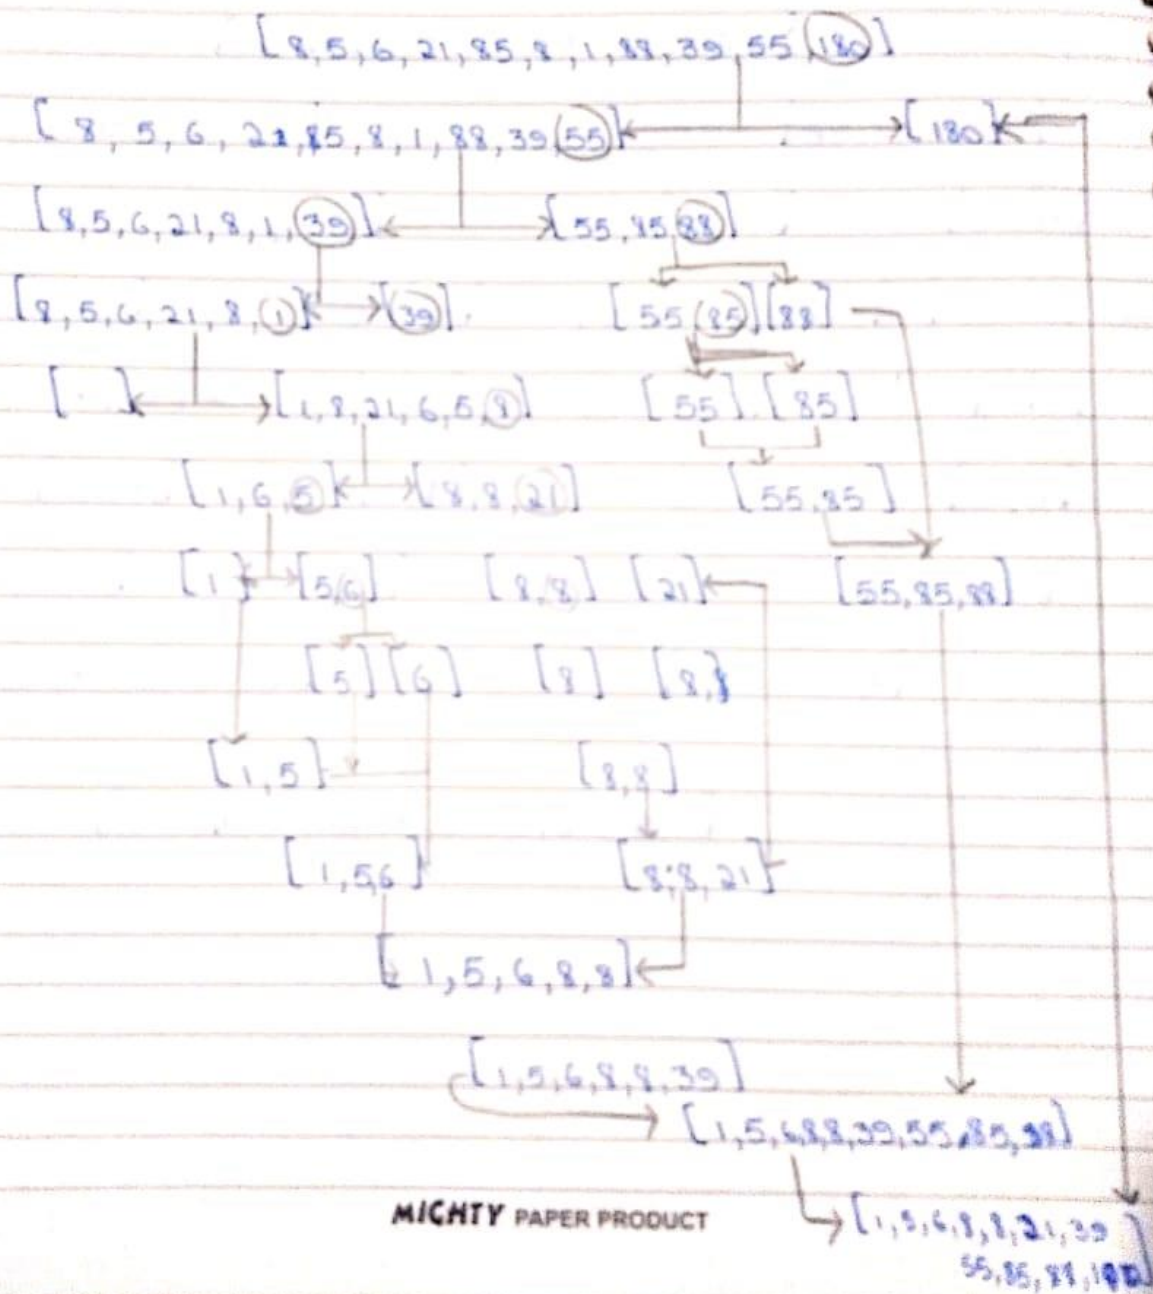 [ 8, 5, 6, 21, 85, 8, 1, 88, 39, 55 180 ]
[ 8, 5, 6, 21, 85, 8, 1, 88, 39 55 ] [ 180 ]
[ 8, 5, 6, 21, 8, 1, 39 ] [ 55, 85, 88 ]
[ 8, 5, 6, 21, 8, 1 ] [ 39 ] [ 55, 85 ] [ 88 ]
[ ] [ 1, 8, 21, 6, 5, 8 ] [ 55 ] [ 85 ]
[ 1, 6, 5 ] [ 8, 8, 21 ] [ 55, 85 ]
[ 1 ] [ 5, 6 ] [ 8, 8 ] [ 21 ] [ 55, 85, 88 ]
[ 5 ] [ 6 ] [ 8 ] [ 8, ]
[ 1, 5 ] [ 8, 8 ]
[ 1, 5, 6 ] [ 8, 8, 21 ]
[ 1, 5, 6, 8, 8 ]
[ 1, 5, 6, 8, 8, 39 ]
[ 1, 5, 6, 8, 8, 39, 55, 85, 88 ]
MIGHTY PAPER PRODUCT
[ 1, 5, 6, 8, 8, 21, 39 ]
55, 85, 88, 180